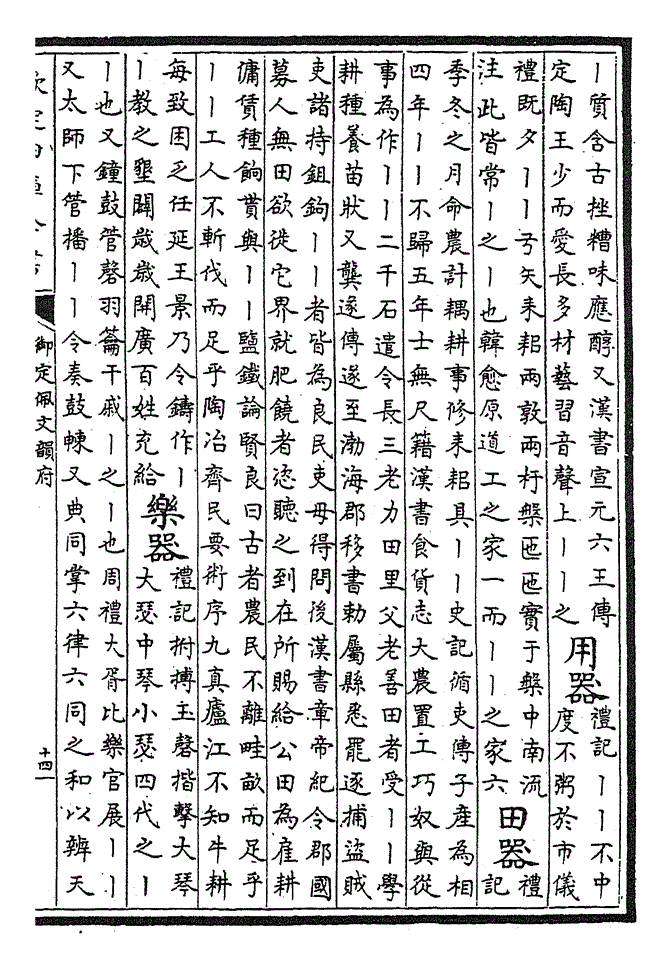 丨質含古挫糟味應醇又漢書宣元六王傳
定陶王少而愛長多材藝習音聲上丨丨之
用器
禮記丨丨不中
度不粥於市儀
禮既夕丨丨弓矢耒耜兩敦兩杅槃匜匜實于槃中南流
注此皆常丨之丨也韓愈原道工之家一而丨丨之家六
田器
禮
記
季冬之月命農計耦耕事修耒耜具丨丨史記循吏傳子產為相
四年丨丨不歸五年士無尺籍漢書食貨志大農置工巧奴與從
事為作丨丨二千石遣令長三老力田里父老善田者受丨丨學
耕種養苗狀又龔遂傳遂至渤海郡移書勅屬縣悉罷逐捕盜賊
吏諸持鉏鉤丨丨者皆為良民吏毋得問後漢書章帝紀令郡國
募人無田欲徙它界就肥饒者恣聽之到在所賜給公田為雇耕
傭賃種餉貰與丨丨鹽鐵論賢良曰古者農民不離畦畝而足乎
丨丨工人不斬伐而足乎陶冶齊民要術序九真廬江不知牛耕
每致困乏任延王景乃令鑄作丨
丨教之墾闢歲歲開廣百姓充給
樂器
禮記拊搏玉磬揩擊大琴
大瑟中琴小瑟四代之丨
丨也又鐘鼓管磬羽籥干戚丨之丨也周禮大胥比樂官展丨丨
又太師下管播丨丨令奏鼓朄又典同掌六律六同之和以辨天
御定佩文韻府
十四